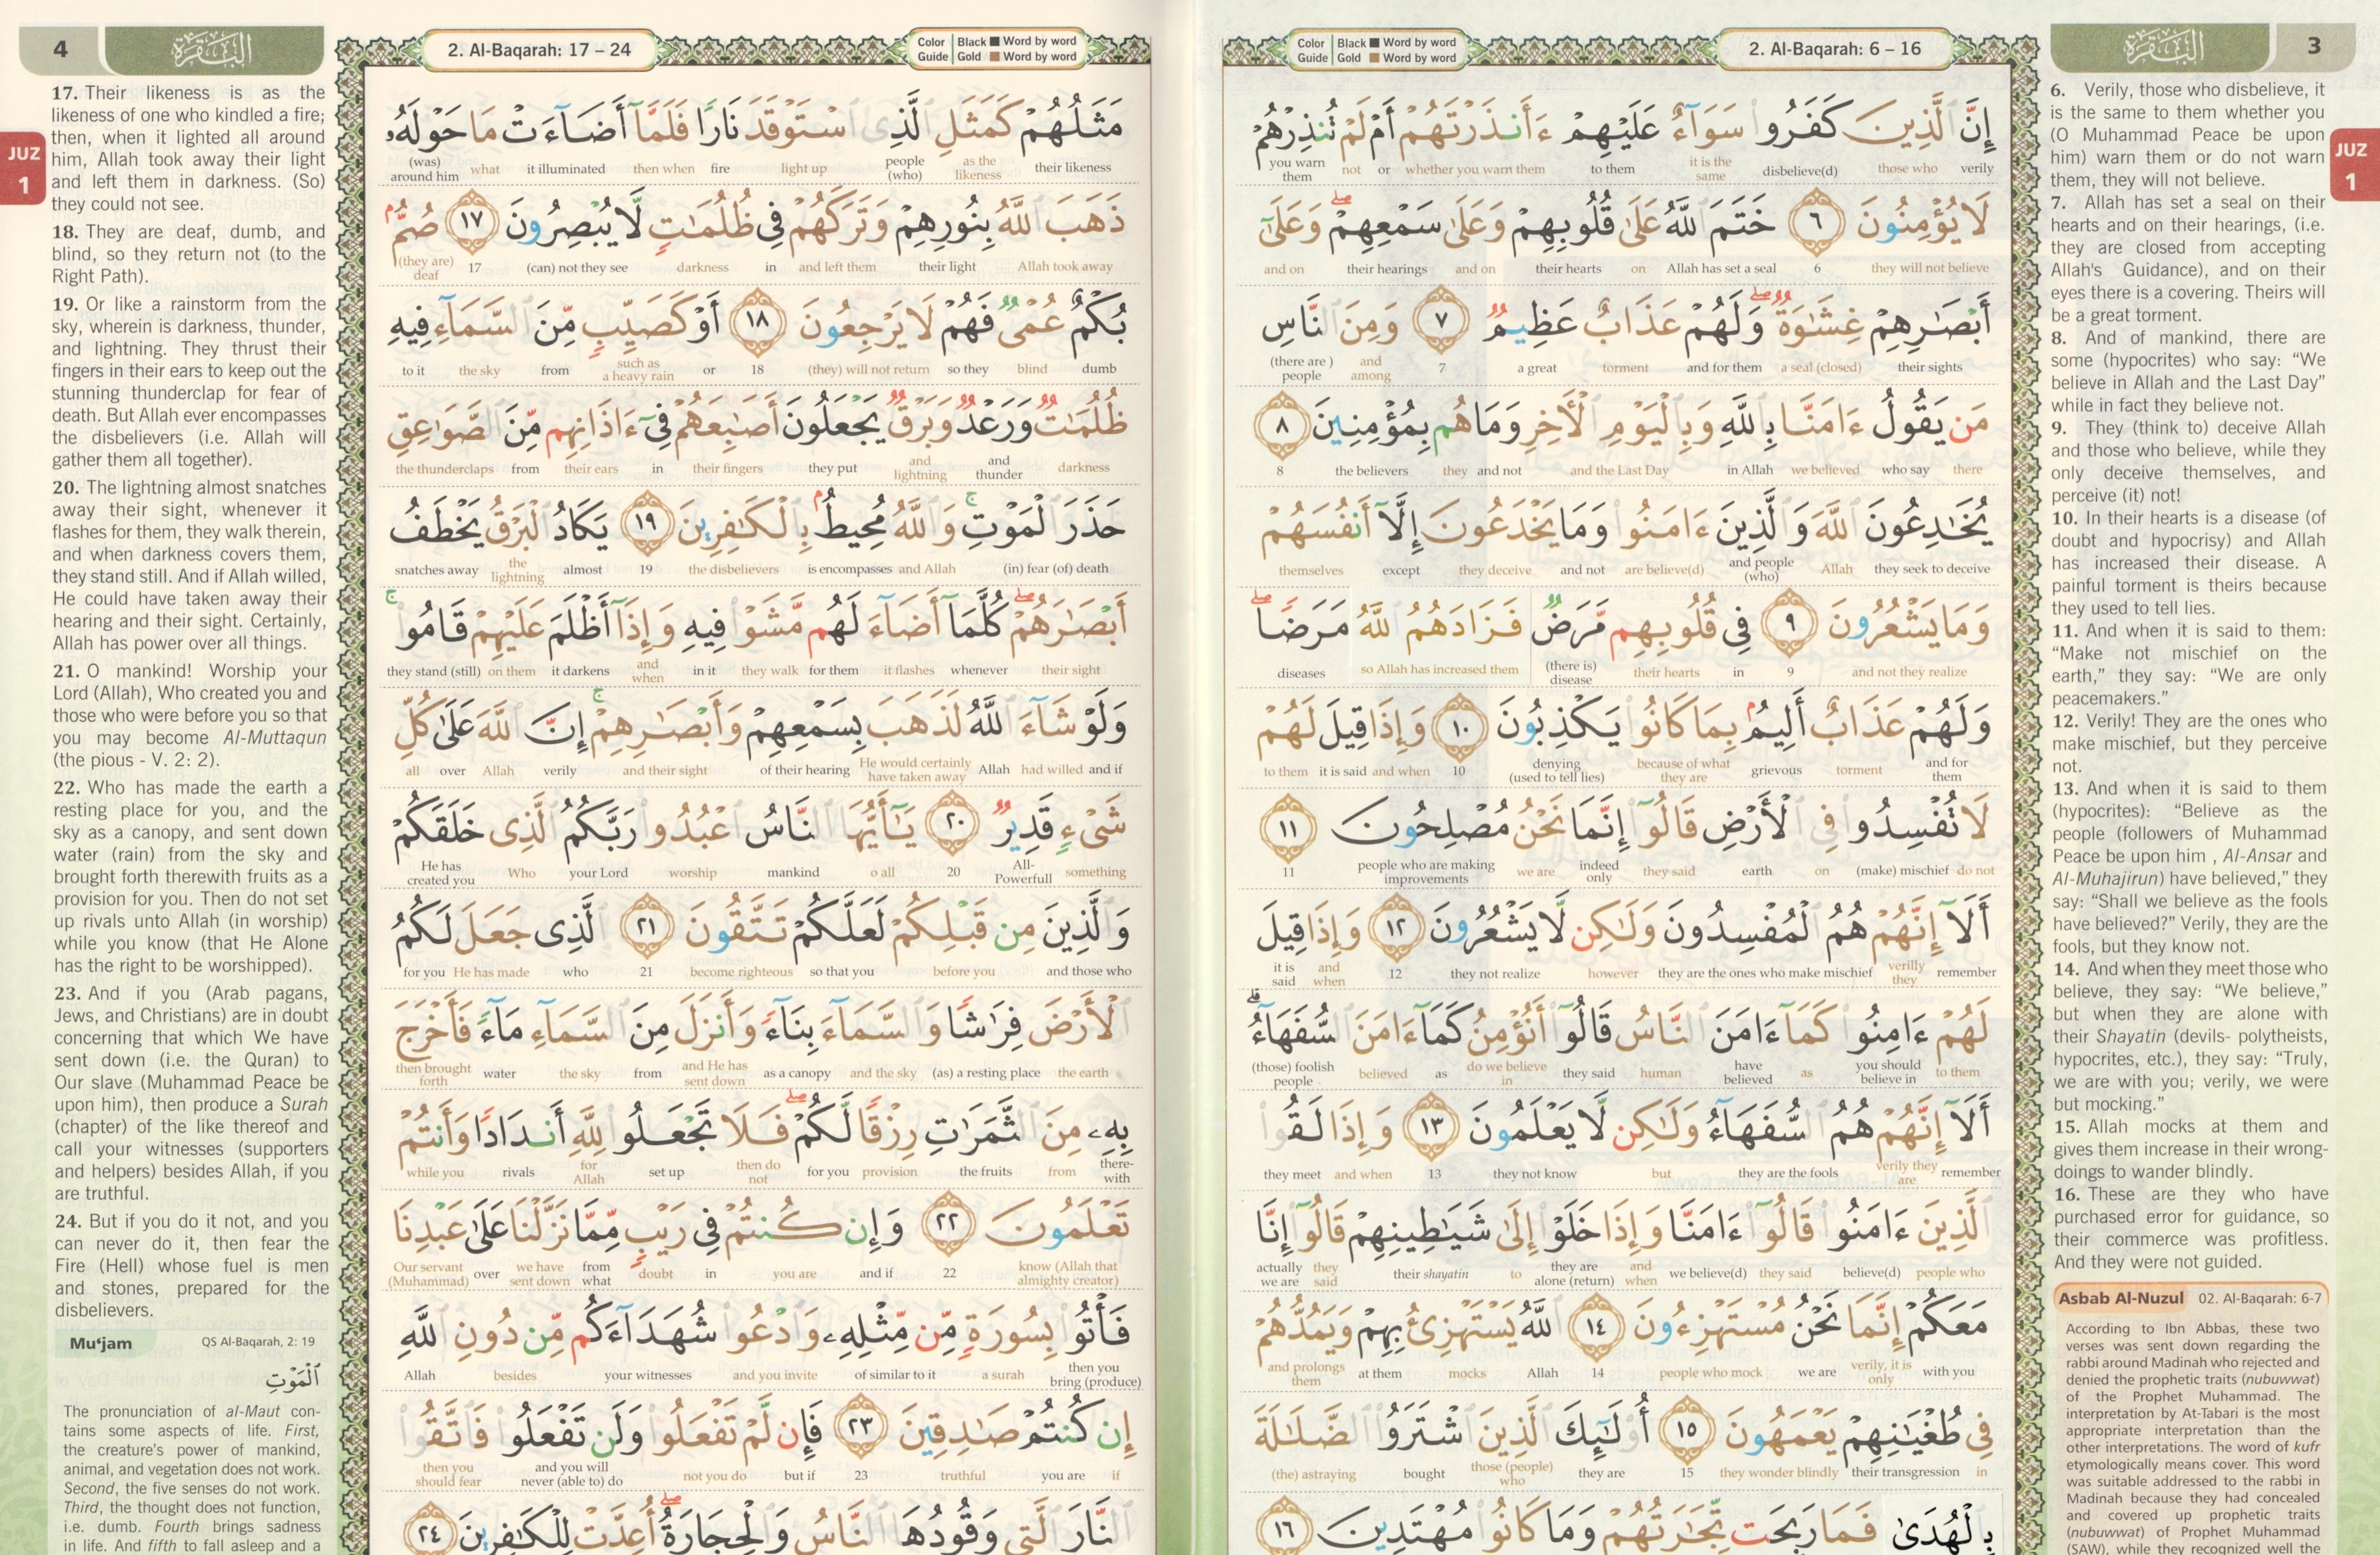 3
البقرة
2. Al-Baqarah: 6 – 16
Color Guide
Black ■ Word by word
Gold ■ Word by word
JUZ
1
إِنَّ ٱلَّذِينَ كَفَرُوا۟ سَوَآءٌ عَلَيْهِمْ ءَأَنذَرْتَهُمْ أَمْ لَمْ تُنذِرْهُمْ
verily those who disbelieve(d) it is the same to them whether you warn them or not you warn them
لَا يُؤْمِنُونَ ٦ خَتَمَ ٱللَّهُ عَلَىٰ قُلُوبِهِمْ وَعَلَىٰ سَمْعِهِمْ ۖ وَعَلَىٰٓ
they will not believe 6 Allah has set a seal on their hearts and on their hearings and on
أَبْصَٰرِهِمْ غِشَٰوَةٌ ۖ وَلَهُمْ عَذَابٌ عَظِيمٌ ٧ وَمِنَ ٱلنَّاسِ
their sights a seal (closed) and for them torment a great 7 and among (there are ) people
مَن يَقُولُ ءَامَنَّا بِٱللَّهِ وَبِٱلْيَوْمِ ٱلْءَاخِرِ وَمَا هُم بِمُؤْمِنِينَ ٨
there who say we believed in Allah and the Last Day and not they the believers 8
يُخَٰدِعُونَ ٱللَّهَ وَٱلَّذِينَ ءَامَنُوا۟ وَمَا يَخْدَعُونَ إِلَّآ أَنفُسَهُمْ
they seek to deceive Allah and people (who) are believe(d) and not they deceive except themselves
وَمَا يَشْعُرُونَ ٩ فِى قُلُوبِهِم مَّرَضٌ فَزَادَهُمُ ٱللَّهُ مَرَضًا ۖ
and not they realize 9 in their hearts (there is) disease so Allah has increased them diseases
وَلَهُمْ عَذَابٌ أَلِيمٌۢ بِمَا كَانُوا۟ يَكْذِبُونَ ١٠ وَإِذَا قِيلَ لَهُمْ
and for them torment grievous because of what they are denying (used to tell lies) 10 and when it is said to them
لَا تُفْسِدُوا۟ فِى ٱلْأَرْضِ قَالُوٓا۟ إِنَّمَا نَحْنُ مُصْلِحُونَ ١١
do not (make) mischief on earth they said indeed only we are people who are making improvements 11
أَلَآ إِنَّهُمْ هُمُ ٱلْمُفْسِدُونَ وَلَٰكِن لَّا يَشْعُرُونَ ١٢ وَإِذَا قِيلَ
remember verilly they they are the ones who make mischief however they not realize 12 and when it is said
لَهُمْ ءَامِنُوا۟ كَمَآ ءَامَنَ ٱلنَّاسُ قَالُوٓا۟ أَنُؤْمِنُ كَمَآ ءَامَنَ ٱلسُّفَهَآءُ ۗ
to them you should believe in as have believed human they said do we believe in as believed (those) foolish people
أَلَآ إِنَّهُمْ هُمُ ٱلسُّفَهَآءُ وَلَٰكِن لَّا يَعْلَمُونَ ١٣ وَإِذَا لَقُوا۟
remember verily they are they are the fools but they not know 13 and when they meet
ٱلَّذِينَ ءَامَنُوا۟ قَالُوٓا۟ ءَامَنَّا وَإِذَا خَلَوْا۟ إِلَىٰ شَيَٰطِينِهِمْ قَالُوٓا۟ إِنَّا
people who believe(d) they said we believe(d) and when they are alone (return) to their shayatin they said actually we are
مَعَكُمْ إِنَّمَا نَحْنُ مُسْتَهْزِءُونَ ١٤ ٱللَّهُ يَسْتَهْزِئُ بِهِمْ وَيَمُدُّهُمْ
with you verily, it is only we are people who mock 14 Allah mocks at them and prolongs them
فِى طُغْيَٰنِهِمْ يَعْمَهُونَ ١٥ أُو۟لَٰٓئِكَ ٱلَّذِينَ ٱشْتَرَوُا۟ ٱلضَّلَٰلَةَ
in their transgression they wonder blindly 15 they are those (people) who bought (the) astraying
بِٱلْهُدَىٰ فَمَا رَبِحَت تِّجَٰرَتُهُمْ وَمَا كَانُوا۟ مُهْتَدِينَ ١٦
6. Verily, those who disbelieve, it
is the same to them whether you
(O Muhammad Peace be upon
him) warn them or do not warn
them, they will not believe.
7. Allah has set a seal on their
hearts and on their hearings, (i.e.
they are closed from accepting
Allah's Guidance), and on their
eyes there is a covering. Theirs will
be a great torment.
8. And of mankind, there are
some (hypocrites) who say: “We
believe in Allah and the Last Day”
while in fact they believe not.
9. They (think to) deceive Allah
and those who believe, while they
only deceive themselves, and
perceive (it) not!
10. In their hearts is a disease (of
doubt and hypocrisy) and Allah
has increased their disease. A
painful torment is theirs because
they used to tell lies.
11. And when it is said to them:
“Make not mischief on the
earth,” they say: “We are only
peacemakers.”
12. Verily! They are the ones who
make mischief, but they perceive
not.
13. And when it is said to them
(hypocrites): “Believe as the
people (followers of Muhammad
Peace be upon him , Al-Ansar and
Al-Muhajirun) have believed,” they
say: “Shall we believe as the fools
have believed?” Verily, they are the
fools, but they know not.
14. And when they meet those who
believe, they say: “We believe,”
but when they are alone with
their Shayatin (devils- polytheists,
hypocrites, etc.), they say: “Truly,
we are with you; verily, we were
but mocking.”
15. Allah mocks at them and
gives them increase in their wrong-
doings to wander blindly.
16. These are they who have
purchased error for guidance, so
their commerce was profitless.
And they were not guided.
Asbab Al-Nuzul 02. Al-Baqarah: 6-7
According to Ibn Abbas, these two
verses was sent down regarding the
rabbi around Madinah who rejected and
denied the prophetic traits (nubuwwat)
of the Prophet Muhammad. The
interpretation by At-Tabari is the most
appropriate interpretation than the
other interpretations. The word of kufr
etymologically means cover. This word
was suitable addressed to the rabbi in
Madinah because they had concealed
and covered up prophetic traits
(nubuwwat) of Prophet Muhammad
(SAW), while they recognized well the
4
البقرة
2. Al-Baqarah: 17 – 24
Color Guide
Black ■ Word by word
Gold ■ Word by word
JUZ
1
مَثَلُهُمْ كَمَثَلِ ٱلَّذِى ٱسْتَوْقَدَ نَارًا فَلَمَّآ أَضَآءَتْ مَا حَوْلَهُۥ
their likeness as the likeness people (who) light up fire then when it illuminated what (was) around him
ذَهَبَ ٱللَّهُ بِنُورِهِمْ وَتَرَكَهُمْ فِى ظُلُمَٰتٍ لَّا يُبْصِرُونَ ١٧ صُمٌّۢ
Allah took away their light and left them in darkness (can) not they see 17 (they are) deaf
بُكْمٌ عُمْىٌ فَهُمْ لَا يَرْجِعُونَ ١٨ أَوْ كَصَيِّبٍ مِّنَ ٱلسَّمَآءِ فِيهِ
dumb blind so they (they) will not return 18 or such as a heavy rain from the sky to it
ظُلُمَٰتٌ وَرَعْدٌ وَبَرْقٌ يَجْعَلُونَ أَصَٰبِعَهُمْ فِىٓ ءَاذَانِهِم مِّنَ ٱلصَّوَٰعِقِ
darkness and thunder and lightning they put their fingers in their ears from the thunderclaps
حَذَرَ ٱلْمَوْتِ ۚ وَٱللَّهُ مُحِيطٌۢ بِٱلْكَٰفِرِينَ ١٩ يَكَادُ ٱلْبَرْقُ يَخْطَفُ
(in) fear (of) death and Allah is encompasses the disbelievers 19 almost the lightning snatches away
أَبْصَٰرَهُمْ ۖ كُلَّمَآ أَضَآءَ لَهُم مَّشَوْا۟ فِيهِ وَإِذَآ أَظْلَمَ عَلَيْهِمْ قَامُوا۟ ۚ
their sight whenever it flashes for them they walk in it and when it darkens on them they stand (still)
وَلَوْ شَآءَ ٱللَّهُ لَذَهَبَ بِسَمْعِهِمْ وَأَبْصَٰرِهِمْ ۚ إِنَّ ٱللَّهَ عَلَىٰ كُلِّ
and if had willed Allah He would certainly have taken away of their hearing and their sight verily Allah over all
شَىْءٍ قَدِيرٌ ٢٠ يَٰٓأَيُّهَا ٱلنَّاسُ ٱعْبُدُوا۟ رَبَّكُمُ ٱلَّذِى خَلَقَكُمْ
something All-Powerfull 20 o all mankind worship your Lord Who He has created you
وَٱلَّذِينَ مِن قَبْلِكُمْ لَعَلَّكُمْ تَتَّقُونَ ٢١ ٱلَّذِى جَعَلَ لَكُمُ
and those who before you so that you become righteous 21 who He has made for you
ٱلْأَرْضَ فِرَٰشًا وَٱلسَّمَآءَ بِنَآءً وَأَنزَلَ مِنَ ٱلسَّمَآءِ مَآءً فَأَخْرَجَ
the earth (as) a resting place and the sky as a canopy and He has sent down from the sky water then brought forth
بِهِۦ مِنَ ٱلثَّمَرَٰتِ رِزْقًا لَّكُمْ ۖ فَلَا تَجْعَلُوا۟ لِلَّهِ أَندَادًا وَأَنتُمْ
there-with from the fruits provision for you then do not set up for Allah rivals while you
تَعْلَمُونَ ٢٢ وَإِن كُنتُمْ فِى رَيْبٍ مِّمَّا نَزَّلْنَا عَلَىٰ عَبْدِنَا
know (Allah that almighty creator) 22 and if you are in doubt from what we have sent down over Our servant (Muhammad)
فَأْتُوا۟ بِسُورَةٍ مِّن مِّثْلِهِۦ وَٱدْعُوا۟ شُهَدَآءَكُم مِّن دُونِ ٱللَّهِ
then you bring (produce) a surah of similar to it and you invite your witnesses besides Allah
إِن كُنتُمْ صَٰدِقِينَ ٢٣ فَإِن لَّمْ تَفْعَلُوا۟ وَلَن تَفْعَلُوا۟ فَٱتَّقُوا۟
if you are truthful 23 but if not you do and you will never (able to) do then you should fear
ٱلنَّارَ ٱلَّتِى وَقُودُهَا ٱلنَّاسُ وَٱلْحِجَارَةُ ۖ أُعِدَّتْ لِلْكَٰفِرِينَ ٢٤
17. Their likeness is as the
likeness of one who kindled a fire;
then, when it lighted all around
him, Allah took away their light
and left them in darkness. (So)
they could not see.
18. They are deaf, dumb, and
blind, so they return not (to the
Right Path).
19. Or like a rainstorm from the
sky, wherein is darkness, thunder,
and lightning. They thrust their
fingers in their ears to keep out the
stunning thunderclap for fear of
death. But Allah ever encompasses
the disbelievers (i.e. Allah will
gather them all together).
20. The lightning almost snatches
away their sight, whenever it
flashes for them, they walk therein,
and when darkness covers them,
they stand still. And if Allah willed,
He could have taken away their
hearing and their sight. Certainly,
Allah has power over all things.
21. O mankind! Worship your
Lord (Allah), Who created you and
those who were before you so that
you may become Al-Muttaqun
(the pious - V. 2: 2).
22. Who has made the earth a
resting place for you, and the
sky as a canopy, and sent down
water (rain) from the sky and
brought forth therewith fruits as a
provision for you. Then do not set
up rivals unto Allah (in worship)
while you know (that He Alone
has the right to be worshipped).
23. And if you (Arab pagans,
Jews, and Christians) are in doubt
concerning that which We have
sent down (i.e. the Quran) to
Our slave (Muhammad Peace be
upon him), then produce a Surah
(chapter) of the like thereof and
call your witnesses (supporters
and helpers) besides Allah, if you
are truthful.
24. But if you do it not, and you
can never do it, then fear the
Fire (Hell) whose fuel is men
and stones, prepared for the
disbelievers.
Mu‘jam QS Al-Baqarah, 2: 19
ٱلْمَوْتِ
The pronunciation of al-Maut con-
tains some aspects of life. First,
the creature's power of mankind,
animal, and vegetation does not work.
Second, the five senses do not work.
Third, the thought does not function,
i.e. dumb. Fourth brings sadness
in life. And fifth to fall asleep and a